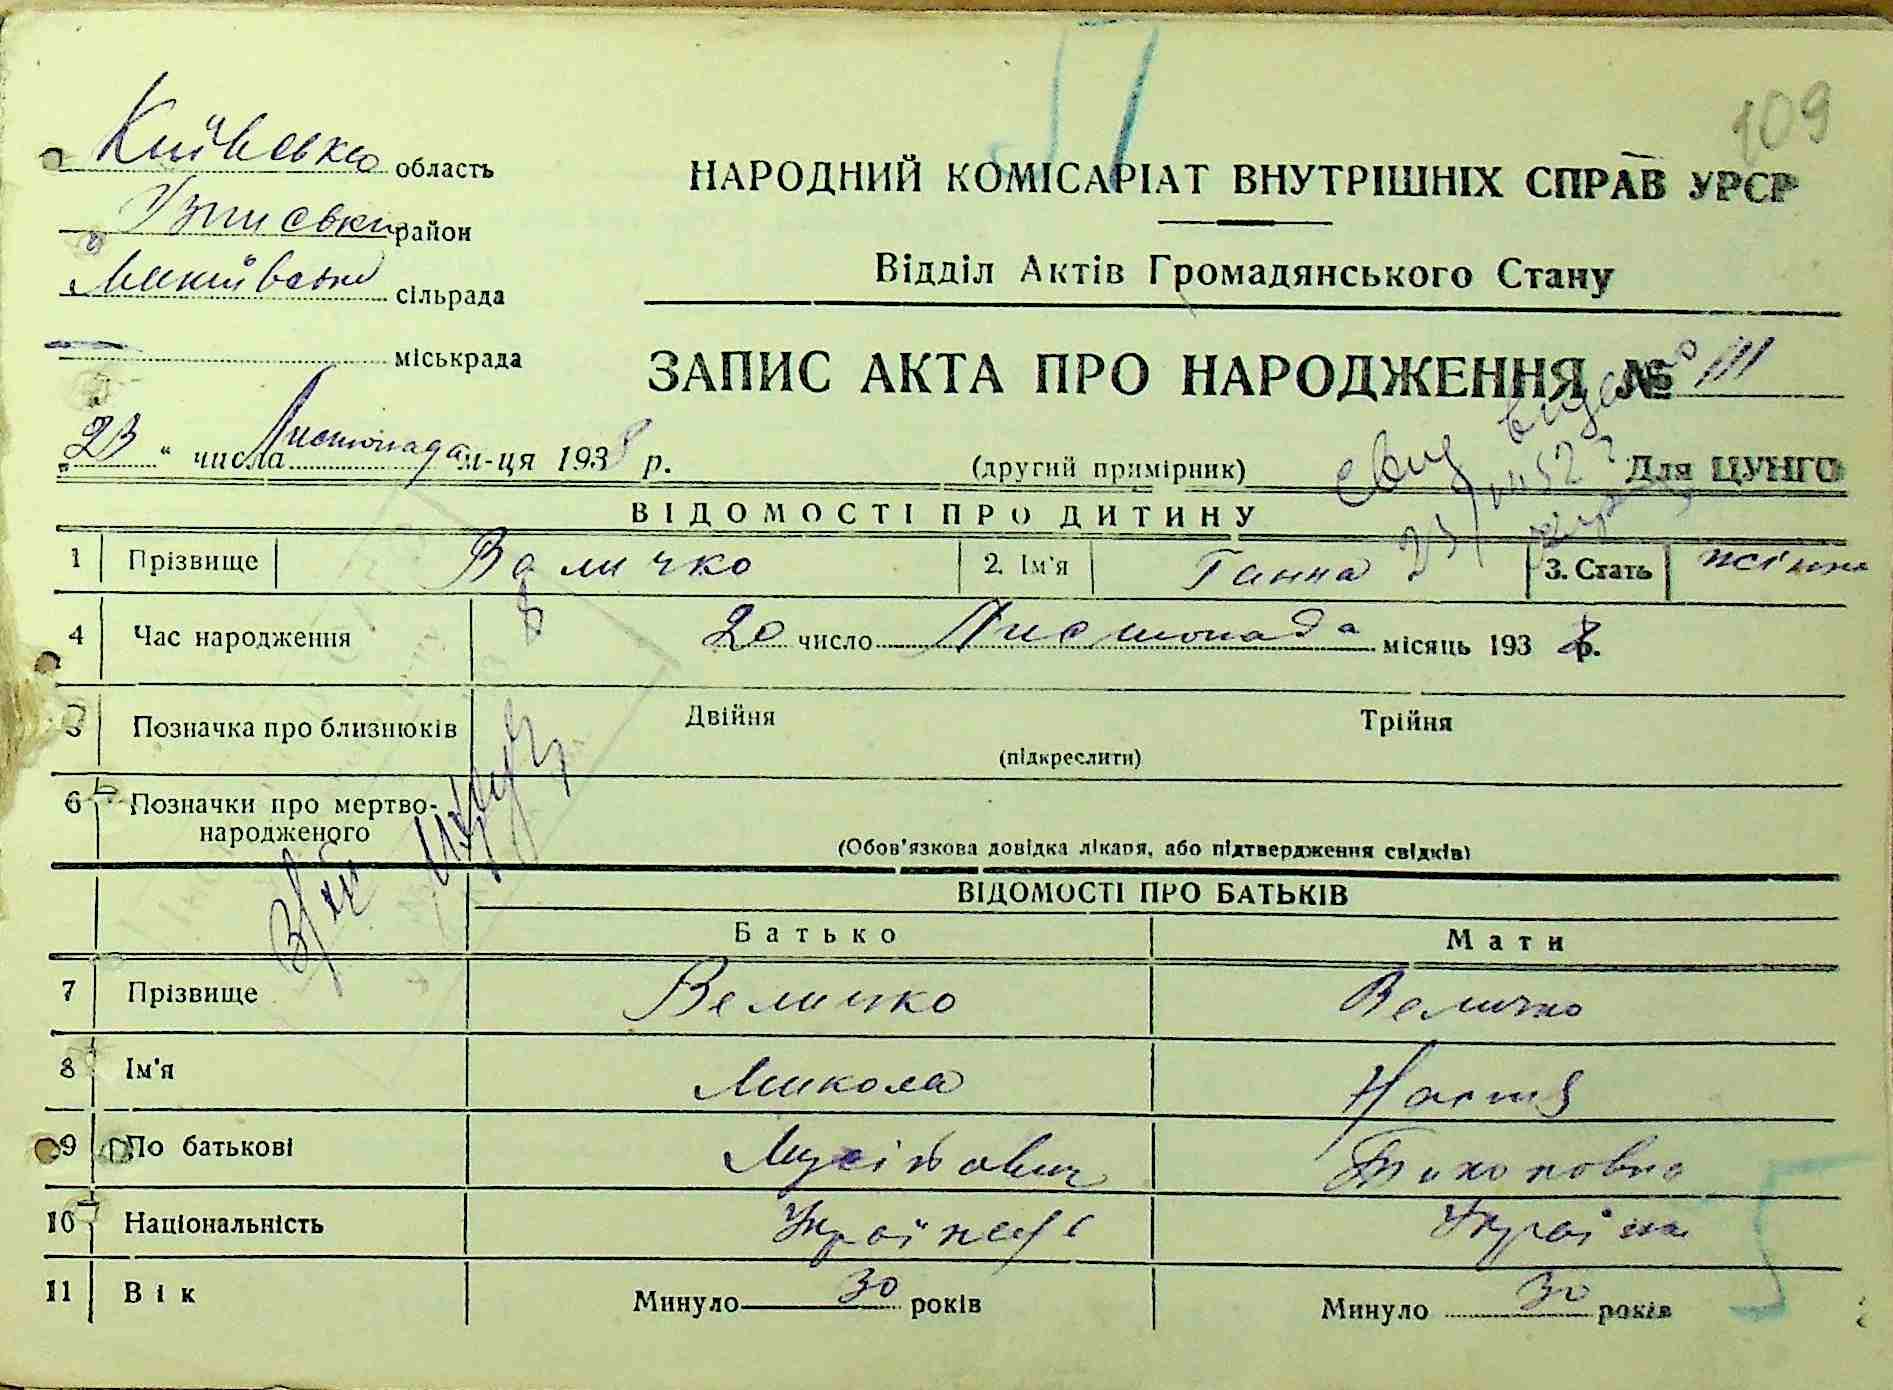 109
Київська область
район
сільрада
міськрада
НАРОДНИЙ КОМІСАРІАТ ВНУТРІШНІХ СПРАВ УРСР
Відділ Актів Громадянського Стану
ЗАПИС АКТА ПРО НАРОДЖЕННЯ № 111
"23" числа Листопада м-ця 1938 р.
(другий примірник)
Для ЦУНГО
ВІДОМОСТІ ПРО ДИТИНУ
1 Прізвище Величко 2. Ім'я Ганна 3. Стать
4 Час народження 20 число Листопада місяць 1938 р.
5 Позначка про близнюків Двійня Трійня
(підкреслити)
6 Позначки про мертво-
народженого
(Обов'язкова довідка лікаря, або підтвердження свідків)
ВІДОМОСТІ ПРО БАТЬКІВ
Батько Мати
7 Прізвище Величко Величко
8 Ім'я Микола Настя
9 По батькові Мусійович Тихоновна
10 Національність Українець Українка
11 Вік Минуло 30 років Минуло 30 років